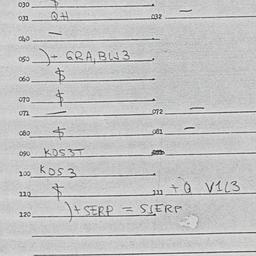 030 $
031 QH 032 —
040 —
050 )+ GRA, BLJ3
060 $
070 $
071 — 072 —
080 $ 081 —
090 KOS3T
100 KOS3
110 $ 111 + Q V1L3
120 )+SERP = SIERP